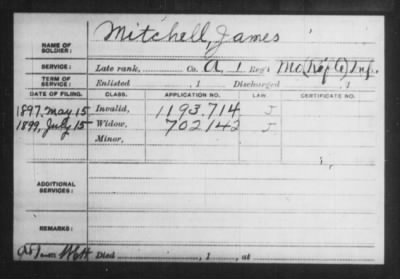 Mitchell, James
NAME OF SOLDIER:
SERVICE: Late rank, Co. A, 1 Reg't Mo. Inf.
TERM OF SERVICE: Enlisted , 1 Discharged , 1
DATE OF FILING. CLASS. APPLICATION NO. LAW. CERTIFICATE NO.
1897, May 15 Invalid, 1193.714 J
1899, July 15 Widow, 702142 J
Minor,
ADDITIONAL SERVICES:
REMARKS:
Died , 1 , at